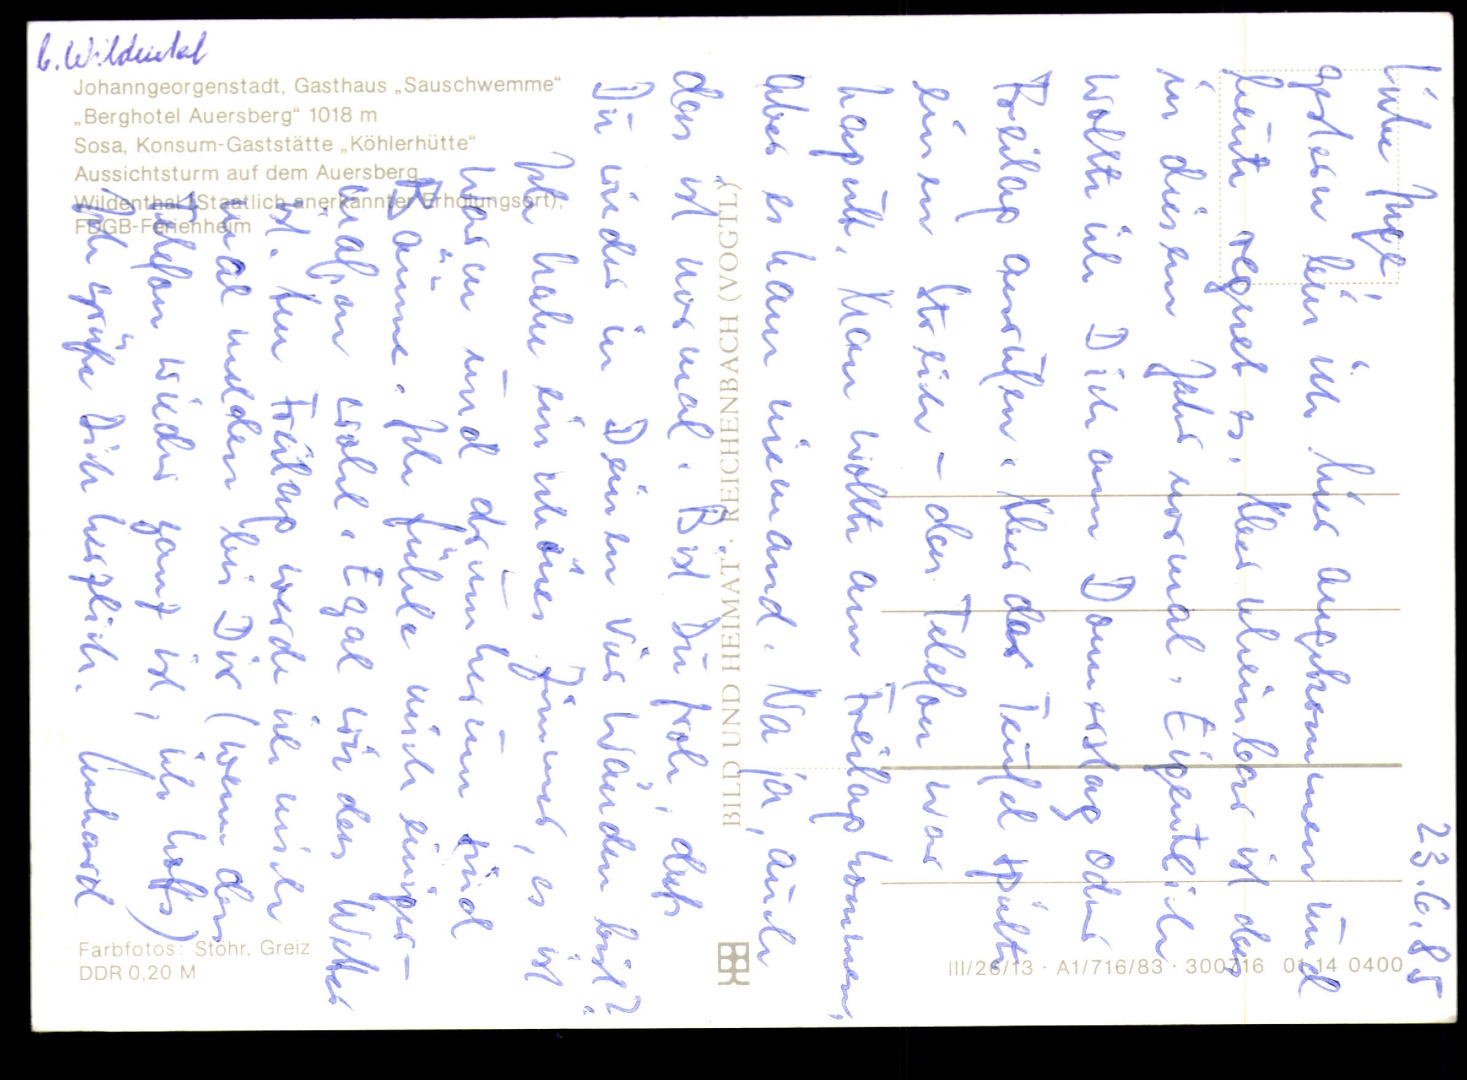 b. Wildental
Johanngeorgenstadt, Gasthaus „Sauschwemme“
„Berghotel Auersberg“ 1018 m
Sosa, Konsum-Gaststätte „Köhlerhütte“
Aussichtsturm auf dem Auersberg
Wildenthal (Staatlich anerkannter Erholungsort),
FDGB-Ferienheim
23.6.85
Liebe Inge
gestern bin ich hier angekommen und
heute regnet es. Aber scheinbar ist das
in diesem Jahr normal. Eigentlich
wollte ich Dich am Donnerstag oder
Freitag anrufen. Aber das Telefon spielte
einen Streich – das Telefon war
kaputt. Man wollte am Freitag kommen,
aber es kam niemand. Na ja, auch
das ist normal. Bist Du froh, daß
Du wieder in Deinen vier Wänden bist?
Ich habe ein schönes Zimmer, es ist
warm und drum herum sind
Bäume. Ich fühle mich einiger-
maßen wohl. Egal wie das Wetter
ist. Am Freitag werde ich mich
mal melden bei Dir (wenn das
Telefon wieder ganz ist, ich hoffs)
Ich grüße Dich herzlich.
BILD UND HEIMAT · REICHENBACH (VOGTL)
Farbfotos: Stöhr, Greiz
DDR 0,20 M
III/26/13 · A1/716/83 · 300716 01 14 0400